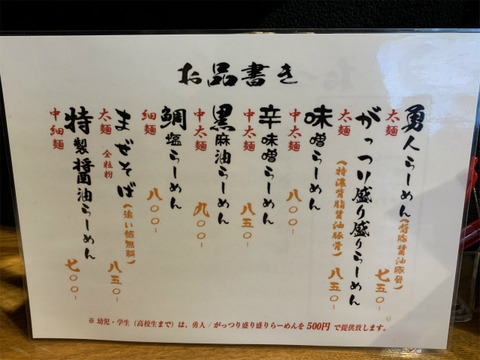 お品書き
勇人らーめん(背脂醤油豚骨)七五〇-
太麺
がっつり盛り盛りらーめん
太麺(特濃背脂醤油豚骨)八五〇-
味噌らーめん
中太麺 八〇〇-
辛味噌らーめん
中太麺 八五〇-
黒麻油らーめん
中太麺 九〇〇-
鯛塩らーめん
細麺 八〇〇-
まぜそば(追い飯無料)八五〇-
太麺 全粒粉
特製醤油らーめん
中細麺 七〇〇-
※ 幼児・学生(高校生まで)は、勇人 / がっつり盛り盛りらーめんを 500円 で提供致します。